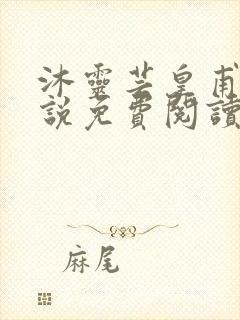 沐靈芸皇甫
說免費閱讀
麻尾